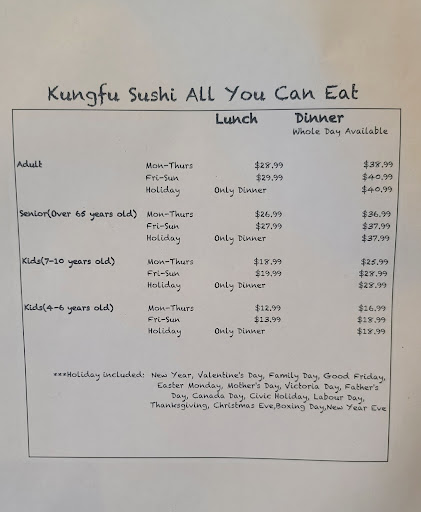 Kungfu Sushi All You Can Eat
Lunch Dinner
Whole Day Available
Adult Mon-Thurs $28.99 $38.99
Fri-Sun $29.99 $40.99
Holiday Only Dinner $40.99
Senior(Over 65 years old) Mon-Thurs $26.99 $36.99
Fri-Sun $27.99 $37.99
Holiday Only Dinner $37.99
Kids(7-10 years old) Mon-Thurs $18.99 $25.99
Fri-Sun $19.99 $28.99
Holiday Only Dinner $28.99
Kids(4-6 years old) Mon-Thurs $12.99 $16.99
Fri-Sun $13.99 $18.99
Holiday Only Dinner $18.99
***Holiday included: New Year, Valentine's Day, Family Day, Good Friday,
Easter Monday, Mother's Day, Victoria Day, Father's
Day, Canada Day, Civic Holiday, Labour Day,
Thanksgiving, Christmas Eve,Boxing Day,New Year Eve